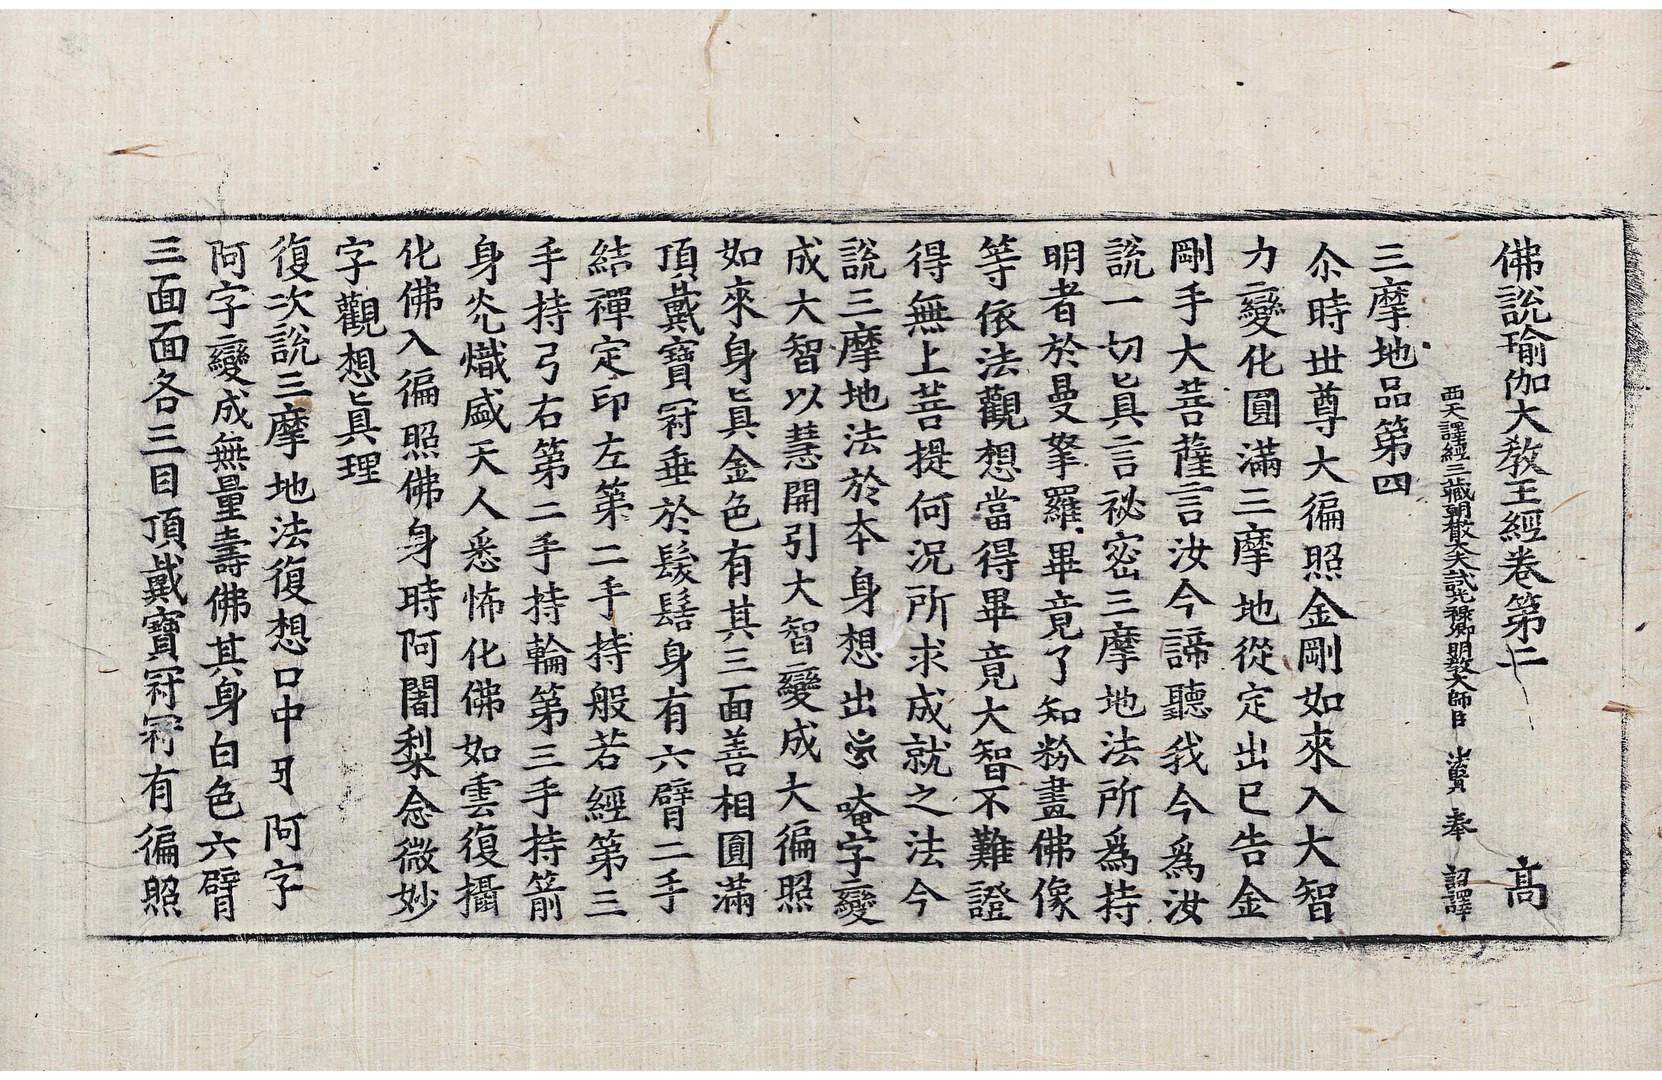 佛說瑜伽大教王經卷第二 高
西天譯經三藏朝散大夫試光祿卿明教大師臣 法賢 奉 詔譯
三摩地品第四
尒時世尊大徧照金剛如來入大智
力變化圓滿三摩地從定出已告金
剛手大菩薩言汝今諦聽我今爲汝
說一切眞言祕密三摩地法所爲持
明者於曼拏羅畢竟了知粉畫佛像
等依法觀想當得畢竟大智不難證
得無上菩提何況所求成就之法今
說三摩地法於本身想出唵字變
成大智以慧開引大智變成大徧照
如來身眞金色有其三面善相圓滿
頂戴寶冠垂於髮髻身有六臂二手
結禪定印左第二手持般若經第三
手持弓右第二手持輪第三手持箭
身光熾盛天人悉怖化佛如雲復攝
化佛入徧照佛身時阿闍梨念微妙
字觀想眞理
復次說三摩地法復想口中 阿字
阿字變成無量壽佛其身白色六臂
三面面各三目頂戴寶冠冠有徧照